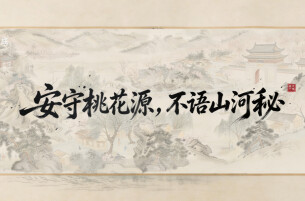 安守桃花源，不语山河秘